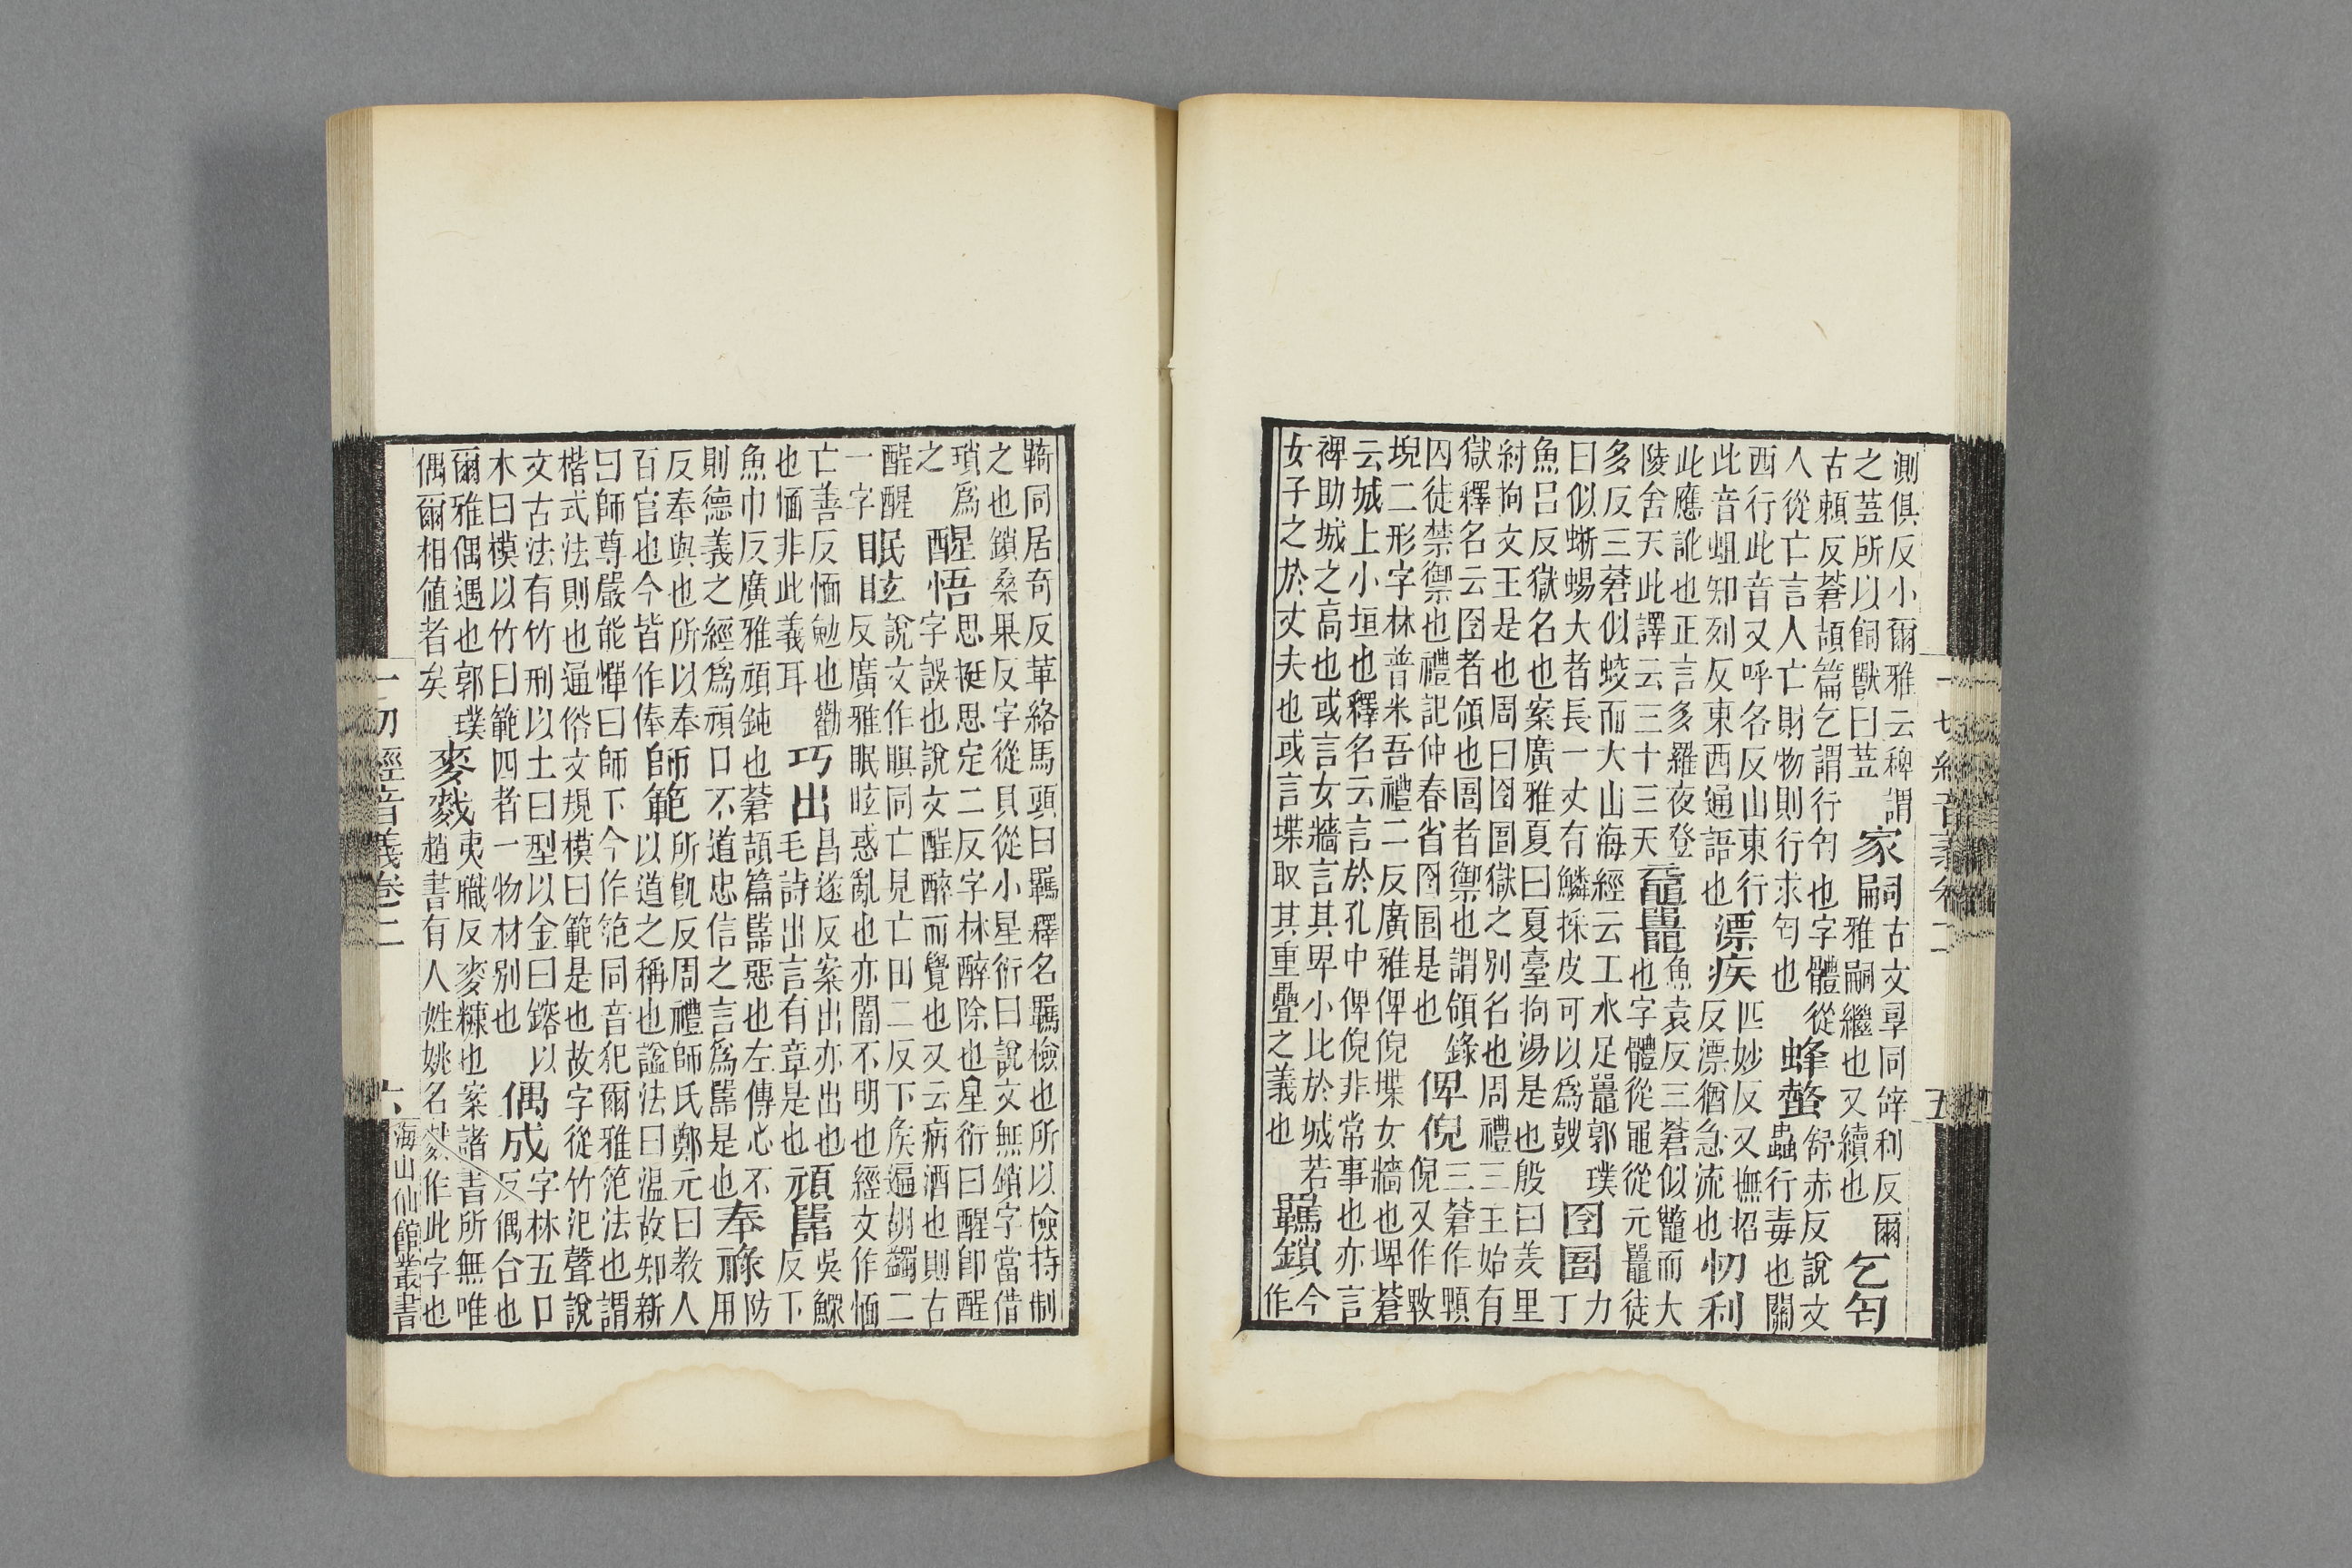 一切經音義卷二
五
測俱反小爾雅云稗謂
之䓁所以飼獸曰䓁
家嗣
古文𤔲同辝利反爾
雅嗣繼也又續也
乞匄
古賴反蒼頡篇乞謂行匄也字體從
人從亡言人亡財物則行求匄也
蜂螫
舒赤反說文
蟲行毒也關
西行此音又呼各反山東行
此音蛆知列反東西通語也
漂疾
匹妙反又撫招
反漂猶急流也
忉利
此應訛也正言多羅夜登
陵舍天此譯云三十三天
黿鼉
魚袁反三蒼似鼈而大
也字體從黽從元鼉徒
多反三蒼似蛟而大山海經云工水足鼉郭璞
曰似蜥蜴大者長一丈有鱗採皮可以爲鼓
囹圄
力
丁
魚呂反獄名也案廣雅夏曰夏臺拘湯是也殷曰羑里
紂拘文王是也周曰囹圄獄之別名也周禮三王始有
獄釋名云囹者領也圄者禦也謂領錄
囚徒禁禦也禮記仲春省囹圄是也
俾倪
三蒼作
倪又作
堄二形字林普米吾禮二反廣雅俾倪堞女牆也埤蒼
云城上小垣也釋名云言於孔中俾倪非常事也亦言
裨助城之高也或言女牆言其卑小比於城若
女子之於丈夫也或言堞取其重疊之義也
羈鎖
今
作
䩭同居奇反革絡馬頭曰羈釋名羈檢也所以檢持制
之也鎖桑果反字從貝從小星衍曰說文無鎖字當借
瑣爲
之
醒悟
思挺思定二反字林醉除也星衍曰醒卽醒
字誤也說文酲醉而覺也又云病酒也則古
酲醒
一字
眠眩
說文作瞑同亡見亡田二反下侯遍胡蠲二
反廣雅眠眩惑亂也亦闇不明也經文作愐
亡善反愐勉也勸
也愐非此義耳
巧出
昌遂反案出亦出也
毛詩出言有章是也
頑嚚
吳鰥
反下
魚巾反廣雅頑鈍也蒼頡篇嚚惡也左傳心不
則德義之經爲頑口不道忠信之言爲嚚是也
奉祿
防
用
反奉與也所以奉
百官也今皆作俸
師範
所飢反周禮師氏鄭元曰教人
以道之稱也謚法曰温故知新
曰師尊嚴能憚曰師下今作笵同音犯爾雅笵法也謂
楷式法則也通俗文規模曰範是也故字從竹氾聲說
文古法有竹刑以土曰型以金曰鎔以
木曰模以竹曰範四者一物材别也
偶成
字林五口
反偶合也
爾雅偶遇也郭璞
偶爾相值者矣
麥䴬
夷職反麥糠也案諸書所無唯
趙書有人姓姚名䴬作此字也
一切經音義卷二
六
海山仙館叢書